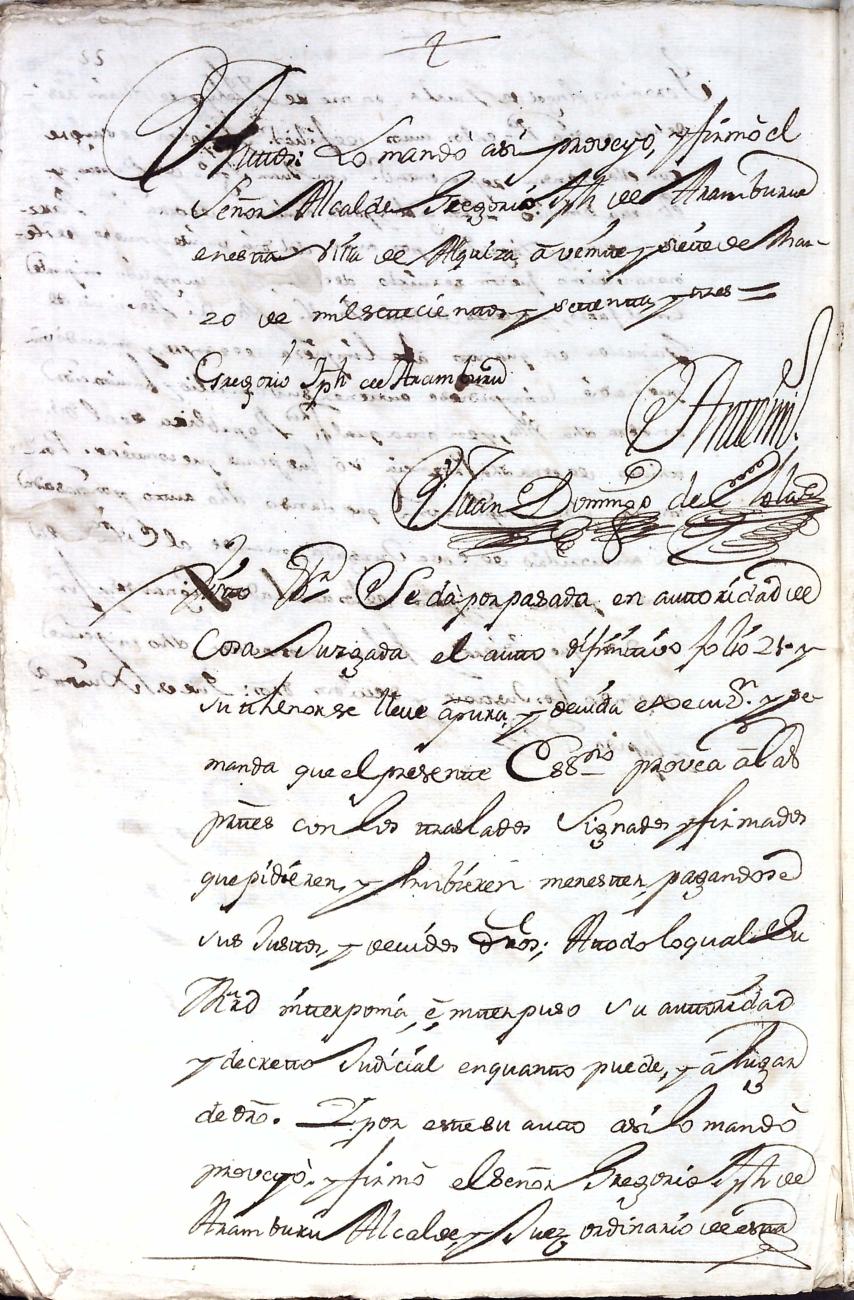 Auttos: Lo mandó asi proveyó, y firmó el
Señor Alcalde Gregorio Jph de Aramburu
en esta villa de Alquiza, â veinte y siete de Mar-
zo de mil settecientos y settenta y tres =
Gregorio Jph de Aramburu
Antemi
Juan Domingo de
Autto Se da por pasada en auttoridad de
Cosa Juzgada el autto difinitivo folio 25. y
su thenor se lleve â pura, y devida execuzn. y se
manda que el presente Essno provea â las
prtes con los traslados signados y firmados
que pidieren, y hubieren menester, pagandose
sus Justos, y devidos dros; A todo lo qual Su
Mrd interponia, ê interpuso su auttoridad
y decretto Judicial en quanto puede, y â lugar
de dro. Y por este su auto asi lo mandó
proveyó, y firmó el Señor Gregorio Jph de
Aramburu Alcalde, y Juez ordinario de esta